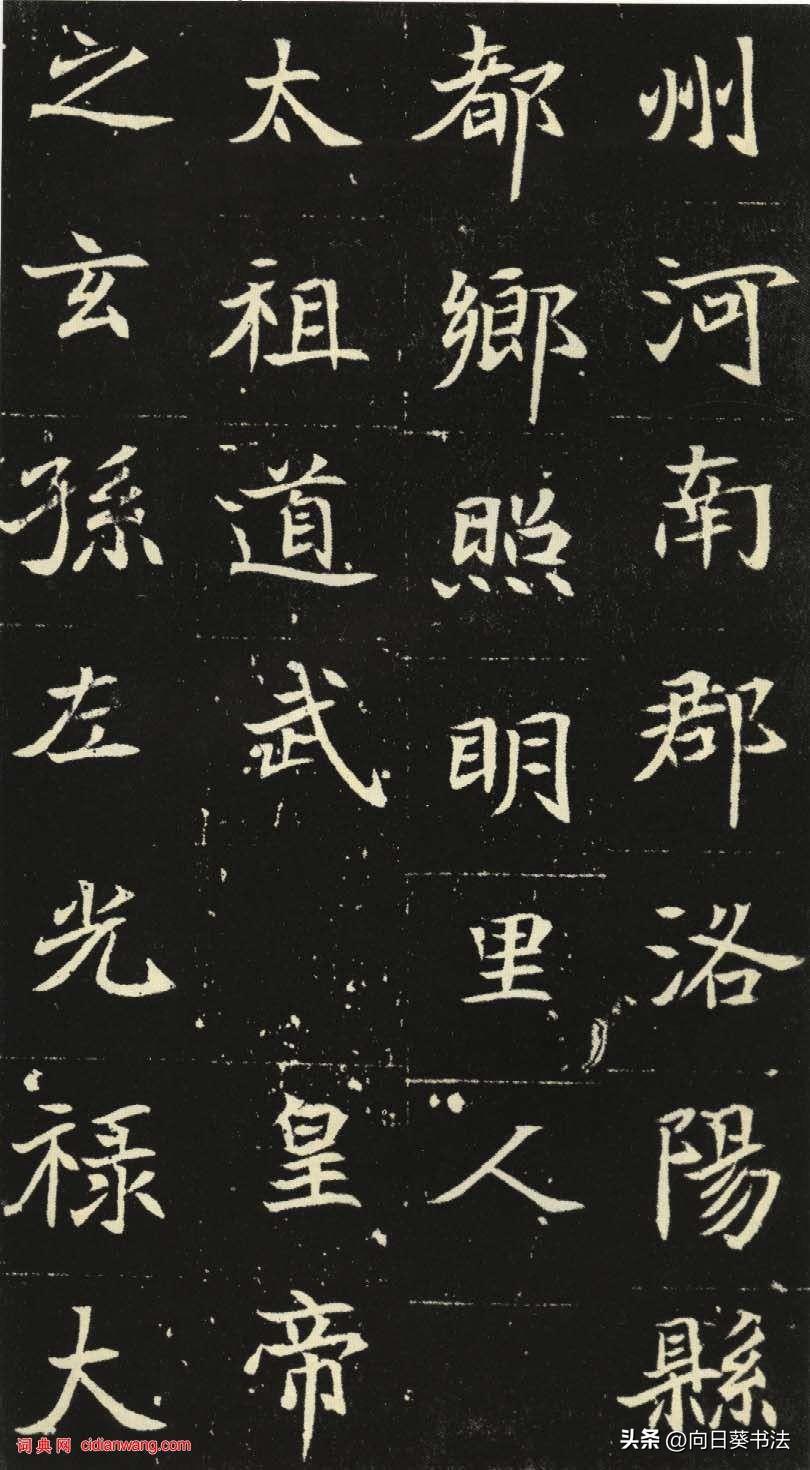 州河南郡洛陽縣
都鄉照明里人
太祖道武皇帝
之玄孫左光祿大
词典网 cidianwang.com
头条 @向日葵书法